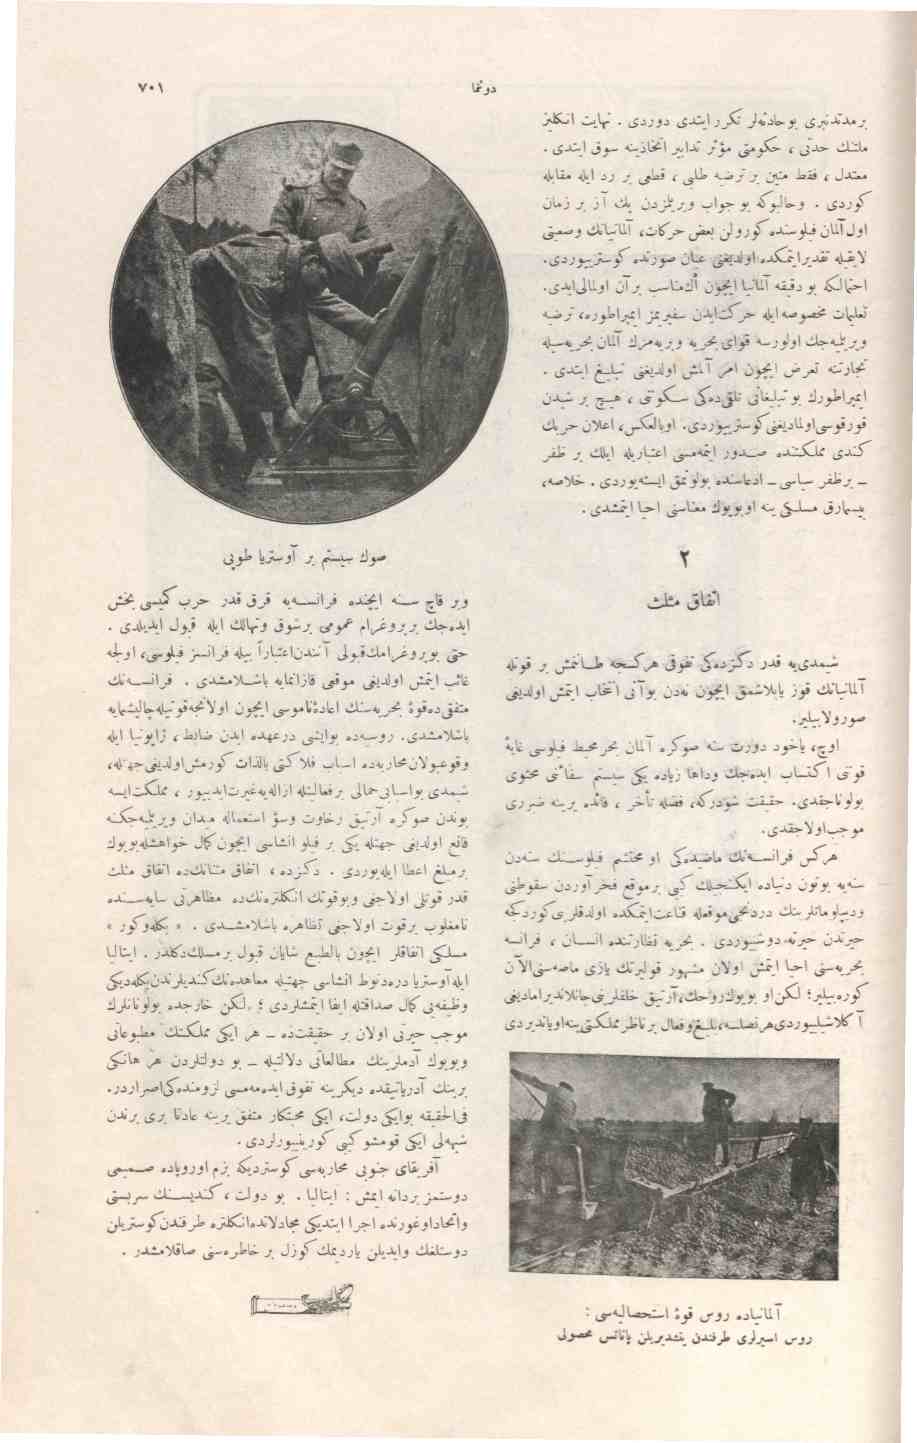 دوننما
٧٠١
بر مدتدنبری بو حادثه‌لر تكرر ایتدی دوردی . نهایت انكلیز
ملتنك حدتی ، حكومتی مؤثر تدابیر اتخاذینه سوق ایتدی .
معتدل ، فقط متین بر ترضیه طلبی ، قطعی بر رد ایله مقابله
كوردی . وحالبوكه بو جواب ویریلزدن پك آز بر زمان
اول آلمان فیلوسنده كورولن بعض حركات، آلمانیانك وضعیتی
لایقیله تقدیر ایتمكده اولدیغنی عیان صورتده كوستریبوردی.
احتمالكه بو دقیقه آلمانیا ایچون اڭ مناسب بر آن اولمالی ایدی.
تعلیمات مخصوصه ایله حركت ایدن سفیریمز ایمپراطوره، ترضیه
ویریلیه‌جك اولورسه قوای بحریه ویریه‌مزك آلمان بحریه‌سیله
تجارتنه تعرض ایچون امر آلمش اولدیغنی تبلیغ ایتدی .
ایمپراطورك بو تبلیغاتی تلقی‌ده‌كی سكوتی ، هیچ بر شیدن
قورقوسی اولمادیغنی كوستریبوردی. اوبالعكس، اعلان حربك
كندی مملكتنده صدور ایتمه‌سی اعتباریله ایلك بر ظفر
ـ بر ظفر سیاسی ـ ادعاسنده بولونمق ایسته‌یوردی . خلاصه،
بیسمارق مسلكی ینه او بویوك معناسنی احیا ایتمشدی .
٢
اتفاق مثلث
شیمدی‌یه قدر دكزده‌كی تفوقی هركسجه طانیمش بر قوتله
آلمانیانك قوز پایلاشمق ایچون نه‌دن بو آنی انتخاب ایتمش اولدیغی
صورولابیلیر.
اوچ، یاخود دورت سنه صوكره آلمان بحر محیط فیلوسی غایهٔ
قوتی اكتساب ایده‌جك وداها زیاده یكی سیستم سفائنی محتوی
بولوناجقدی. حقیقت شودركه، فضله تأخر ، فائده یرینه ضرری
موجب اولاجقدی.
هركس فرانسه‌نك ماضیده‌كی او محتشم فیلوسنك سنه‌دن
سنه‌یه بوتون دنیاده ایكنجیلك كبی بر موقع فخر آوردن سقوطنی
ودیپلوماتلرینك دردنجی موقعله قناعت ایتمكده اولدقلرینی كوردكجه
حیرتدن حیرته دوشیبوردی . بحریه نظارتنده انسان ، فرانسه
بحریه‌سنی احیا ایتمش اولان مشهور قولبرتك یازی ماصه‌سنی الآن
كوره‌بیلیر؛ لكن او بویوك روحك، آرتیق خلفلرینی جانلاندیرامادیغنی
آكلاشیلیبوردی هر نصلسه، بلیغ وفعال بر ناظر مملكتی ینه اویاندیردی
صوك سیستم بر آوستریا طوپی
و بر قاچ سنه ایچنده فرانسه‌یه قرق قدر حرب كمیسی بخش
ایده‌جك بر پروغرام عمومی بر شوق وتهالك ایله قبول ایدیلدی .
حتی بو پروغرامك قبولی آنندن اعتباراً بیله فرانسز فیلوسی، اولجه
غائب ایتمش اولدیغی موقعی قازانمایه باشلامشدی . فرانسه‌نك
متفقی ده قوهٔ بحریه‌سنك اعادهٔ ناموسی ایچون اولانجه قوتیله چالیشمایه
باشلامشدی. روسیه‌ده بو ایشی درعهده ایدن ضابط ، ژاپونیا ایله
وقوعبولان محاربه‌ده اسباب فلاكتی بالذات كورمش اولدیغی جهتله،
شیمدی بو اسبابی جمالی بر فعالیتله ازاله‌یه غیرت ایدییور ، مملكت ایسه
بوندن صوكره آرتیق رخاوت وسوٴ استعماله میدان ویریلمیه‌جكنه
قانع اولدیغی جهتله یكی بر فیلو انشاسی ایچون كمال خواهشله بویوك
بر مبلغ اعطا ایله‌یوردی . دكزده ، اتفاق مثناتك ده اتفاق مثلث
قدر قوتلی اولاجغی وبوقوتك انكلتره‌نك ده مظاهرتی سایه‌سنده
نامغلوب بر قوت اولاجغی تظاهره باشلامشدی . « بكله وكور »
مسلكی اتفاقلر ایچون بالطبع شایان قبول بر مسلك دكلدر . ایتالیا
ایله آوستریا دره‌دنوط انشاسی جهتیله معاهده‌نك كندیلرندن بكله‌دیكی
وظیفه‌یی كمال صداقتله ایفا ایتمشلردی ؛ لكن خارجده بولونانلرك
موجب حیرتی اولان بر حقیقت‌ده ـ هر ایكی مملكتك مطبوعاتی
وبویوك آدملرینك مطالعاتی دلالتیله ـ بو دولتلردن هر هانكی
برینك آدریاتیقده دیكرینه تفوق ایده‌مه‌مسی لزومنده‌كی اصراردر.
فی‌الحقیقه بو ایكی دولت، ایكی محتكار متفق یرینه عادتا بری برندن
شبهه‌لی ایكی قومشو كبی كورینیورلردی .
آفریقای جنوبی محاربه‌سی كوستردیكه بزم اوروپاده صمیمی
دوستمز بر دانه ایمش : ایتالیا . بو دولت ، كندیسنك سربستی
واتحاد اوغورنده اجرا ایتدیكی مجادلاتده انكلتره طرفندن كوستریلن
دوستلغك وایدیلن یاردیمك كوزل بر خاطره‌سنی صاقلامشدر .
آلمانیاده روس قوهٔ استحصالیه‌سی :
روس اسیرلری طرفندن یتشدیریلن پاتاتس محصولی